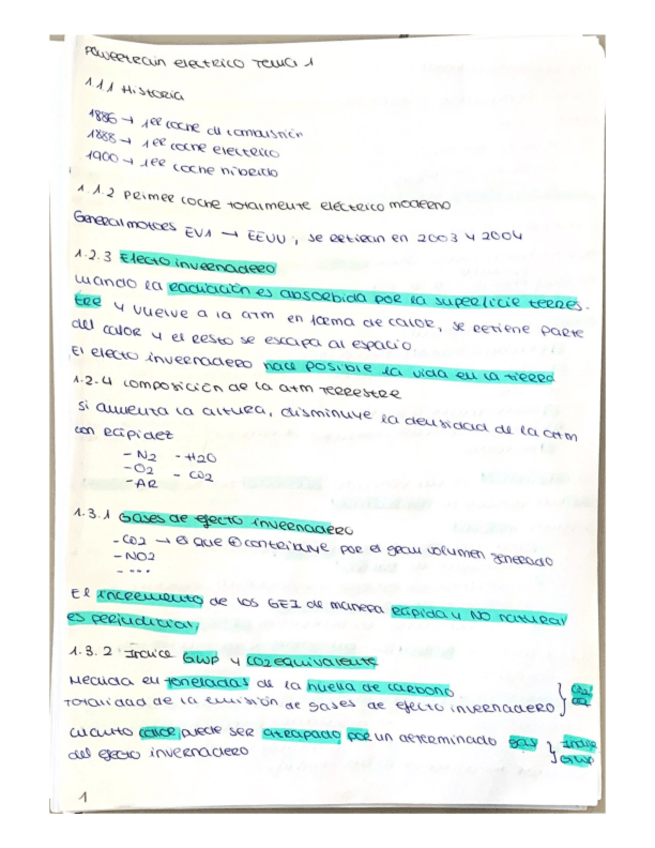 Powertrain electrico Tema 1
1.1.1 Historia
1886 → 1er coche de combustión
1888 → 1er coche electrico
1900 → 1er coche hibrido
1.1.2 Primer coche totalmente eléctrico moderno
General motors EV1 → EEUU, se retiran en 2003 y 2004
1.2.3 Efecto invernadero
cuando la radiación es absorbida por la superficie terres-
tre y vuelve a la atm en forma de calor, se retiene parte
del calor y el resto se escapa al espacio.
El efecto invernadero hace posible la vida en la tierra
1.2.4 composición de la atm terrestre
Si aumenta la altura, disminuye la densidad de la atm
con rapidez
- N2 - H2O
- O2 - CO2
- AR
1.3.1 Gases de efecto invernadero
- CO2 → el que ⊕ contribuye por el gran volumen generado
- NO2
- ....
El incremento de los GEI de manera rápida y NO natural
es perjudicial,
1.3.2 Indice GWP y CO2 equivalente
Medida en toneladas de la huella de carbono
Totalidad de la emisión de gases de efecto invernadero
cuanto calor puede ser atrapado por un determinado gas } Indice
del efecto invernadero GWP
1